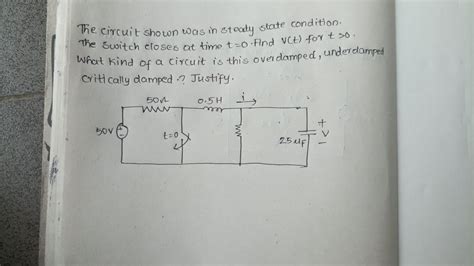 The circuit shown was in steady state condition.
The switch closes at time t=0. Find V(t) for t>0.
What kind of a circuit is this overdamped, underdamped
Critically damped.? Justify.
50Ω 0.5H i
50V t=0 + V −
25 μF